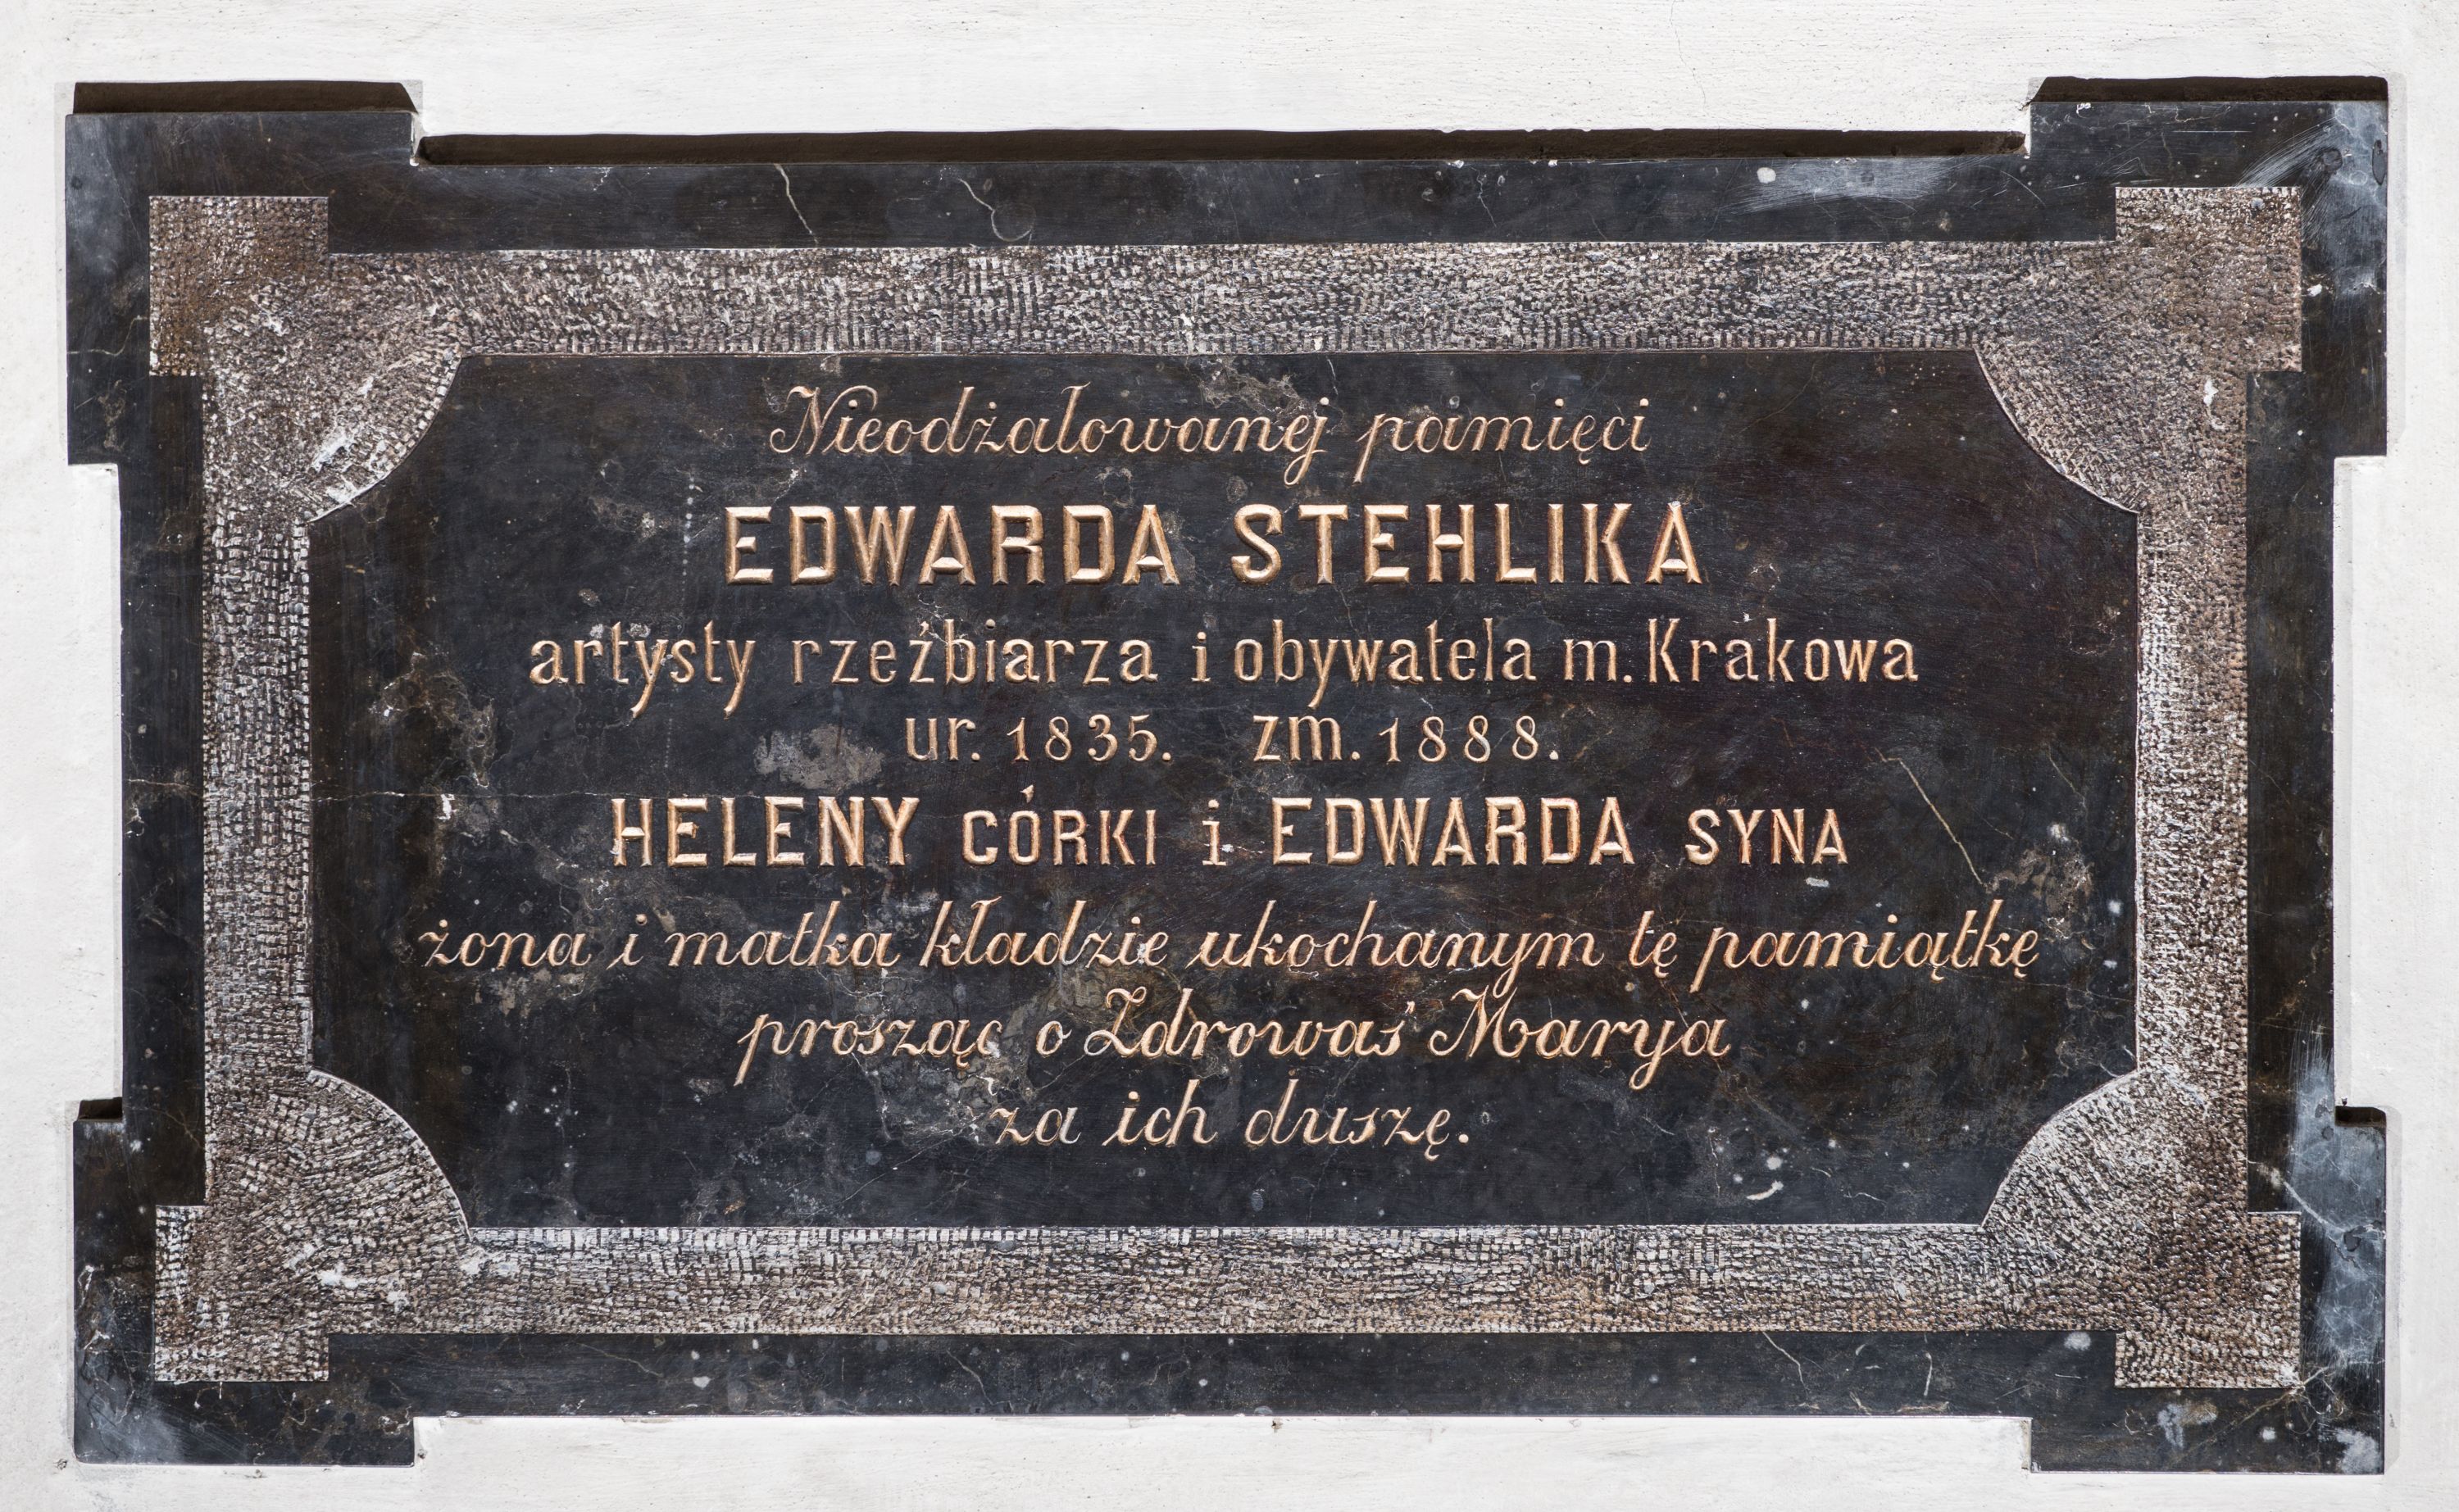 Nieodżalowanej pamięci
EDWARDA STEHLIKA
artysty rzeźbiarza i obywatela m. Krakowa
ur. 1835. zm. 1888.
HELENY CÓRKI i EDWARDA SYNA
żona i matka kładzie ukochanym tę pamiątkę
prosząc o Zdrowaś Marya
za ich duszę.